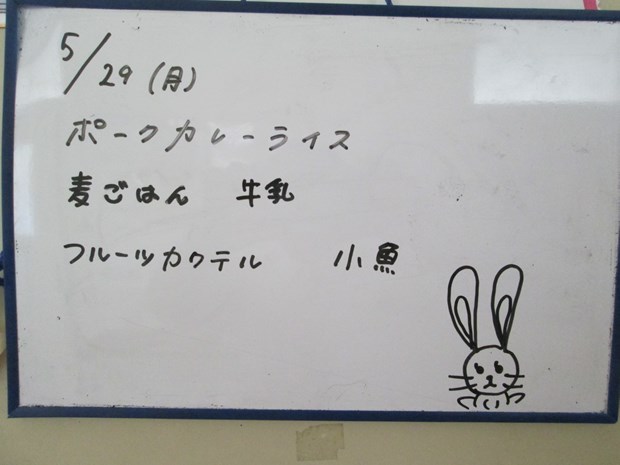 5/29(月)
ポークカレーライス
麦ごはん 牛乳
フルーツカクテル 小魚